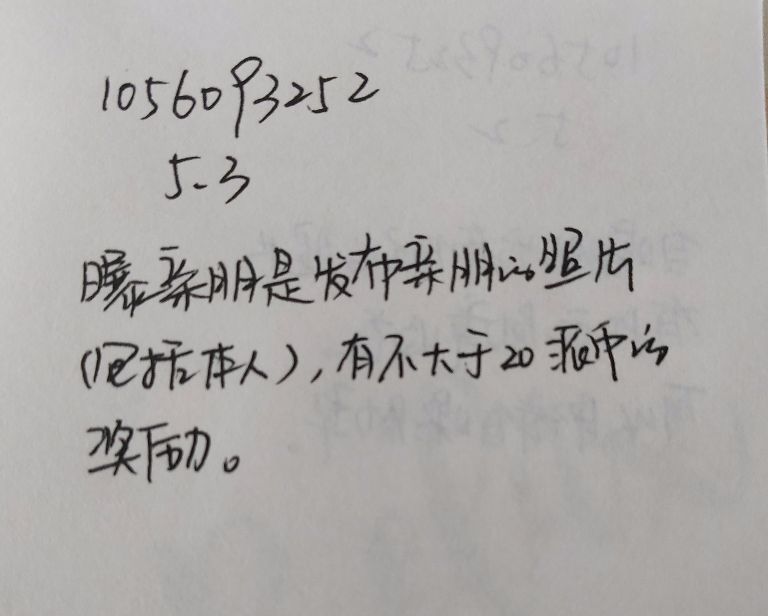 1056093252
5.3
曝亲朋是发布亲朋的照片
(包括本人),有不大于20派币的
奖励。